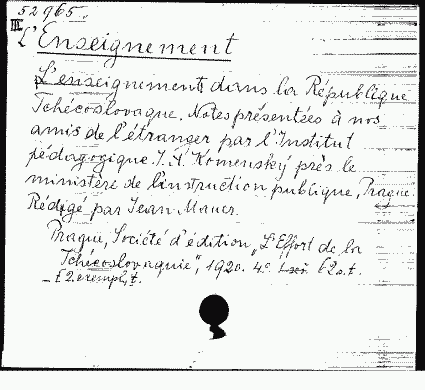 52965.
III
L'Enseignement
L'enseignement dans la République
Tchécoslovaque. Notes présentées à nos
amis de l'étranger par l'Institut
pédagogique J. A. Komenský près le
ministère de l'instruction publique, Prague.
Rédigé par Jean Mauer.
Prague, Société d'édition „L'Effort de la
Tchécoslovaquie", 1920. 4° 62 s. t.
2 exempl.